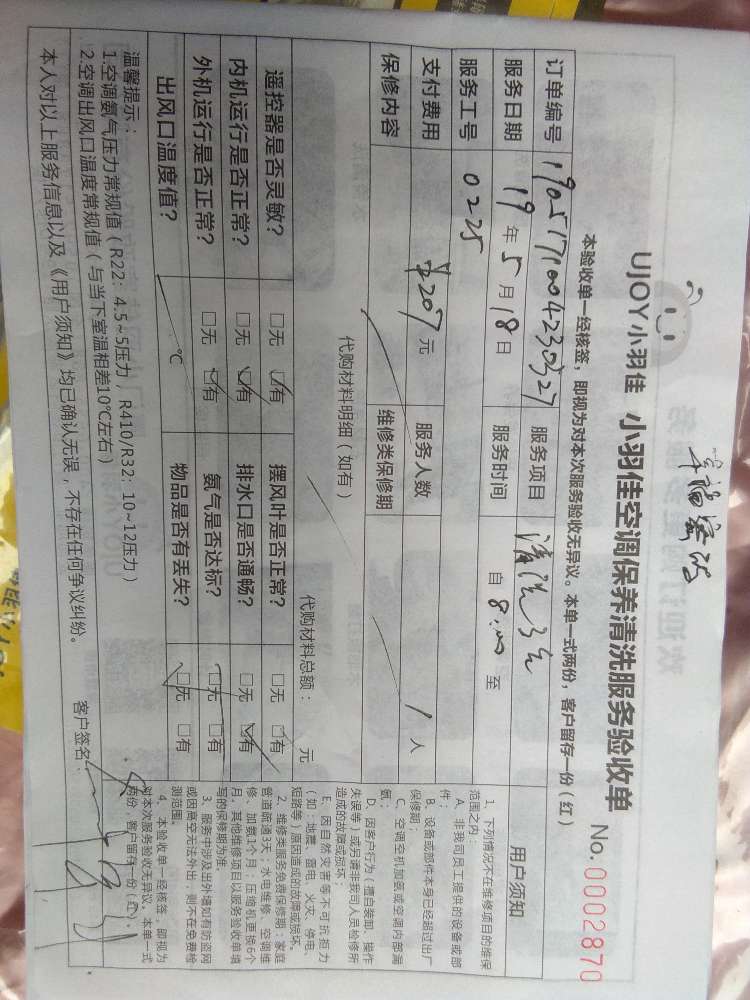 UJOY小羽佳 小羽佳空调保养清洗服务验收单 No.0002870
本验收单一经核签，即视为对本次服务验收无异议。本单一式两份，客户留存一份（红）
订单编号 服务项目 清洗3台
服务日期 19年5月18日 服务时间 自8:00至
服务工号 0225
支付费用 ¥207元 服务人数 1人
保修内容 维修类保修期
代购材料明细（如有）
代购材料总额： 元
遥控器是否灵敏？ □无 ☑有 摆风叶是否正常？ □无 □有
内机运行是否正常？ □无 ☑有 排水口是否通畅？ □无 ☑有
外机运行是否正常？ □无 ☑有 氨气是否达标？ □无 □有
出风口温度值？ ℃ 物品是否有丢失？ ☑无 □有
温馨提示：
1.空调氨气压力常规值（R22：4.5~5压力，R410/R32：10~12压力）
2.空调出风口温度常规值（与当下室温相差10℃左右）
本人对以上服务信息以及《用户须知》均已确认无误，不存在任何争议纠纷。 客户签名：
用户须知
1、下列情况不在维修项目的维保
范围之内：
A、非我司员工提供的设备或部
件；
B、设备或部件本身已经超过出厂
保修期；
C、空调空机加氨或空调内部漏
氨；
D、因客户行为（擅自装卸、操作
失误等）或另请非我司人员检修所
造成的故障或损坏；
E、因自然灾害等不可抗拒力
（如：地震、雷电、火灾、停电、
短路等）原因造成的故障或损坏。
2、维修类服务免费保修期：家庭
管道疏通3天、水电维修、空调维
修、加氨1个月；压缩机更换6个
月，其他维修项目以服务验收单填
写的保修期为准。
3、服务中涉及出外墙如有防盗网
或因悬空无法外出，则不在免费检
测范围。
4、本验收单一经核签，即视为
对本次服务验收无异议，本单一式
两份，客户留存一份（红）。